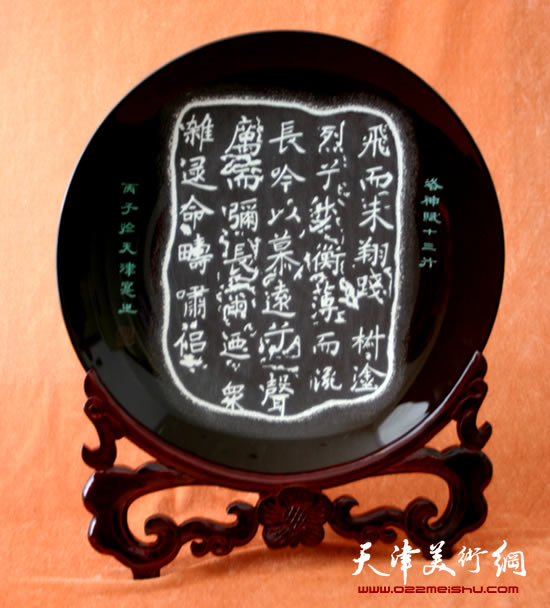 洛神賦十三行
飛而未翔踐 塗
烈 衡薄而流
長吟以慕遠 聲
厲而彌長爾迺衆
雜遝命疇嘯侶
丙子於天津
天津美術網
www.022meishu.com